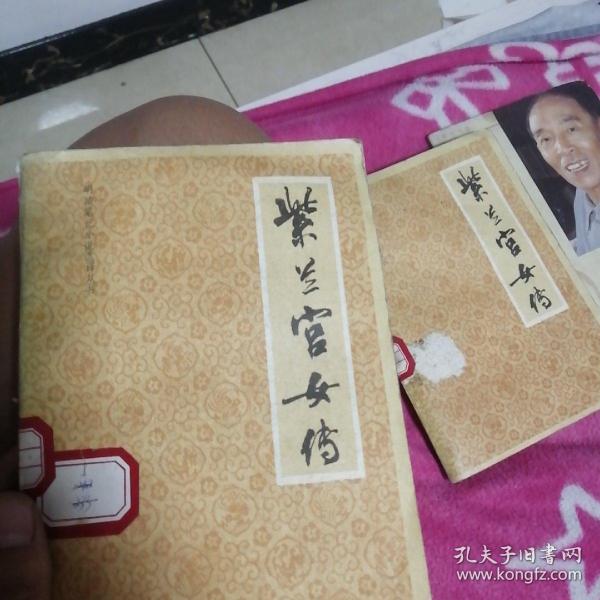 紫兰宫女传
紫兰宫女传
孔夫子旧书网
www.kongfz.com